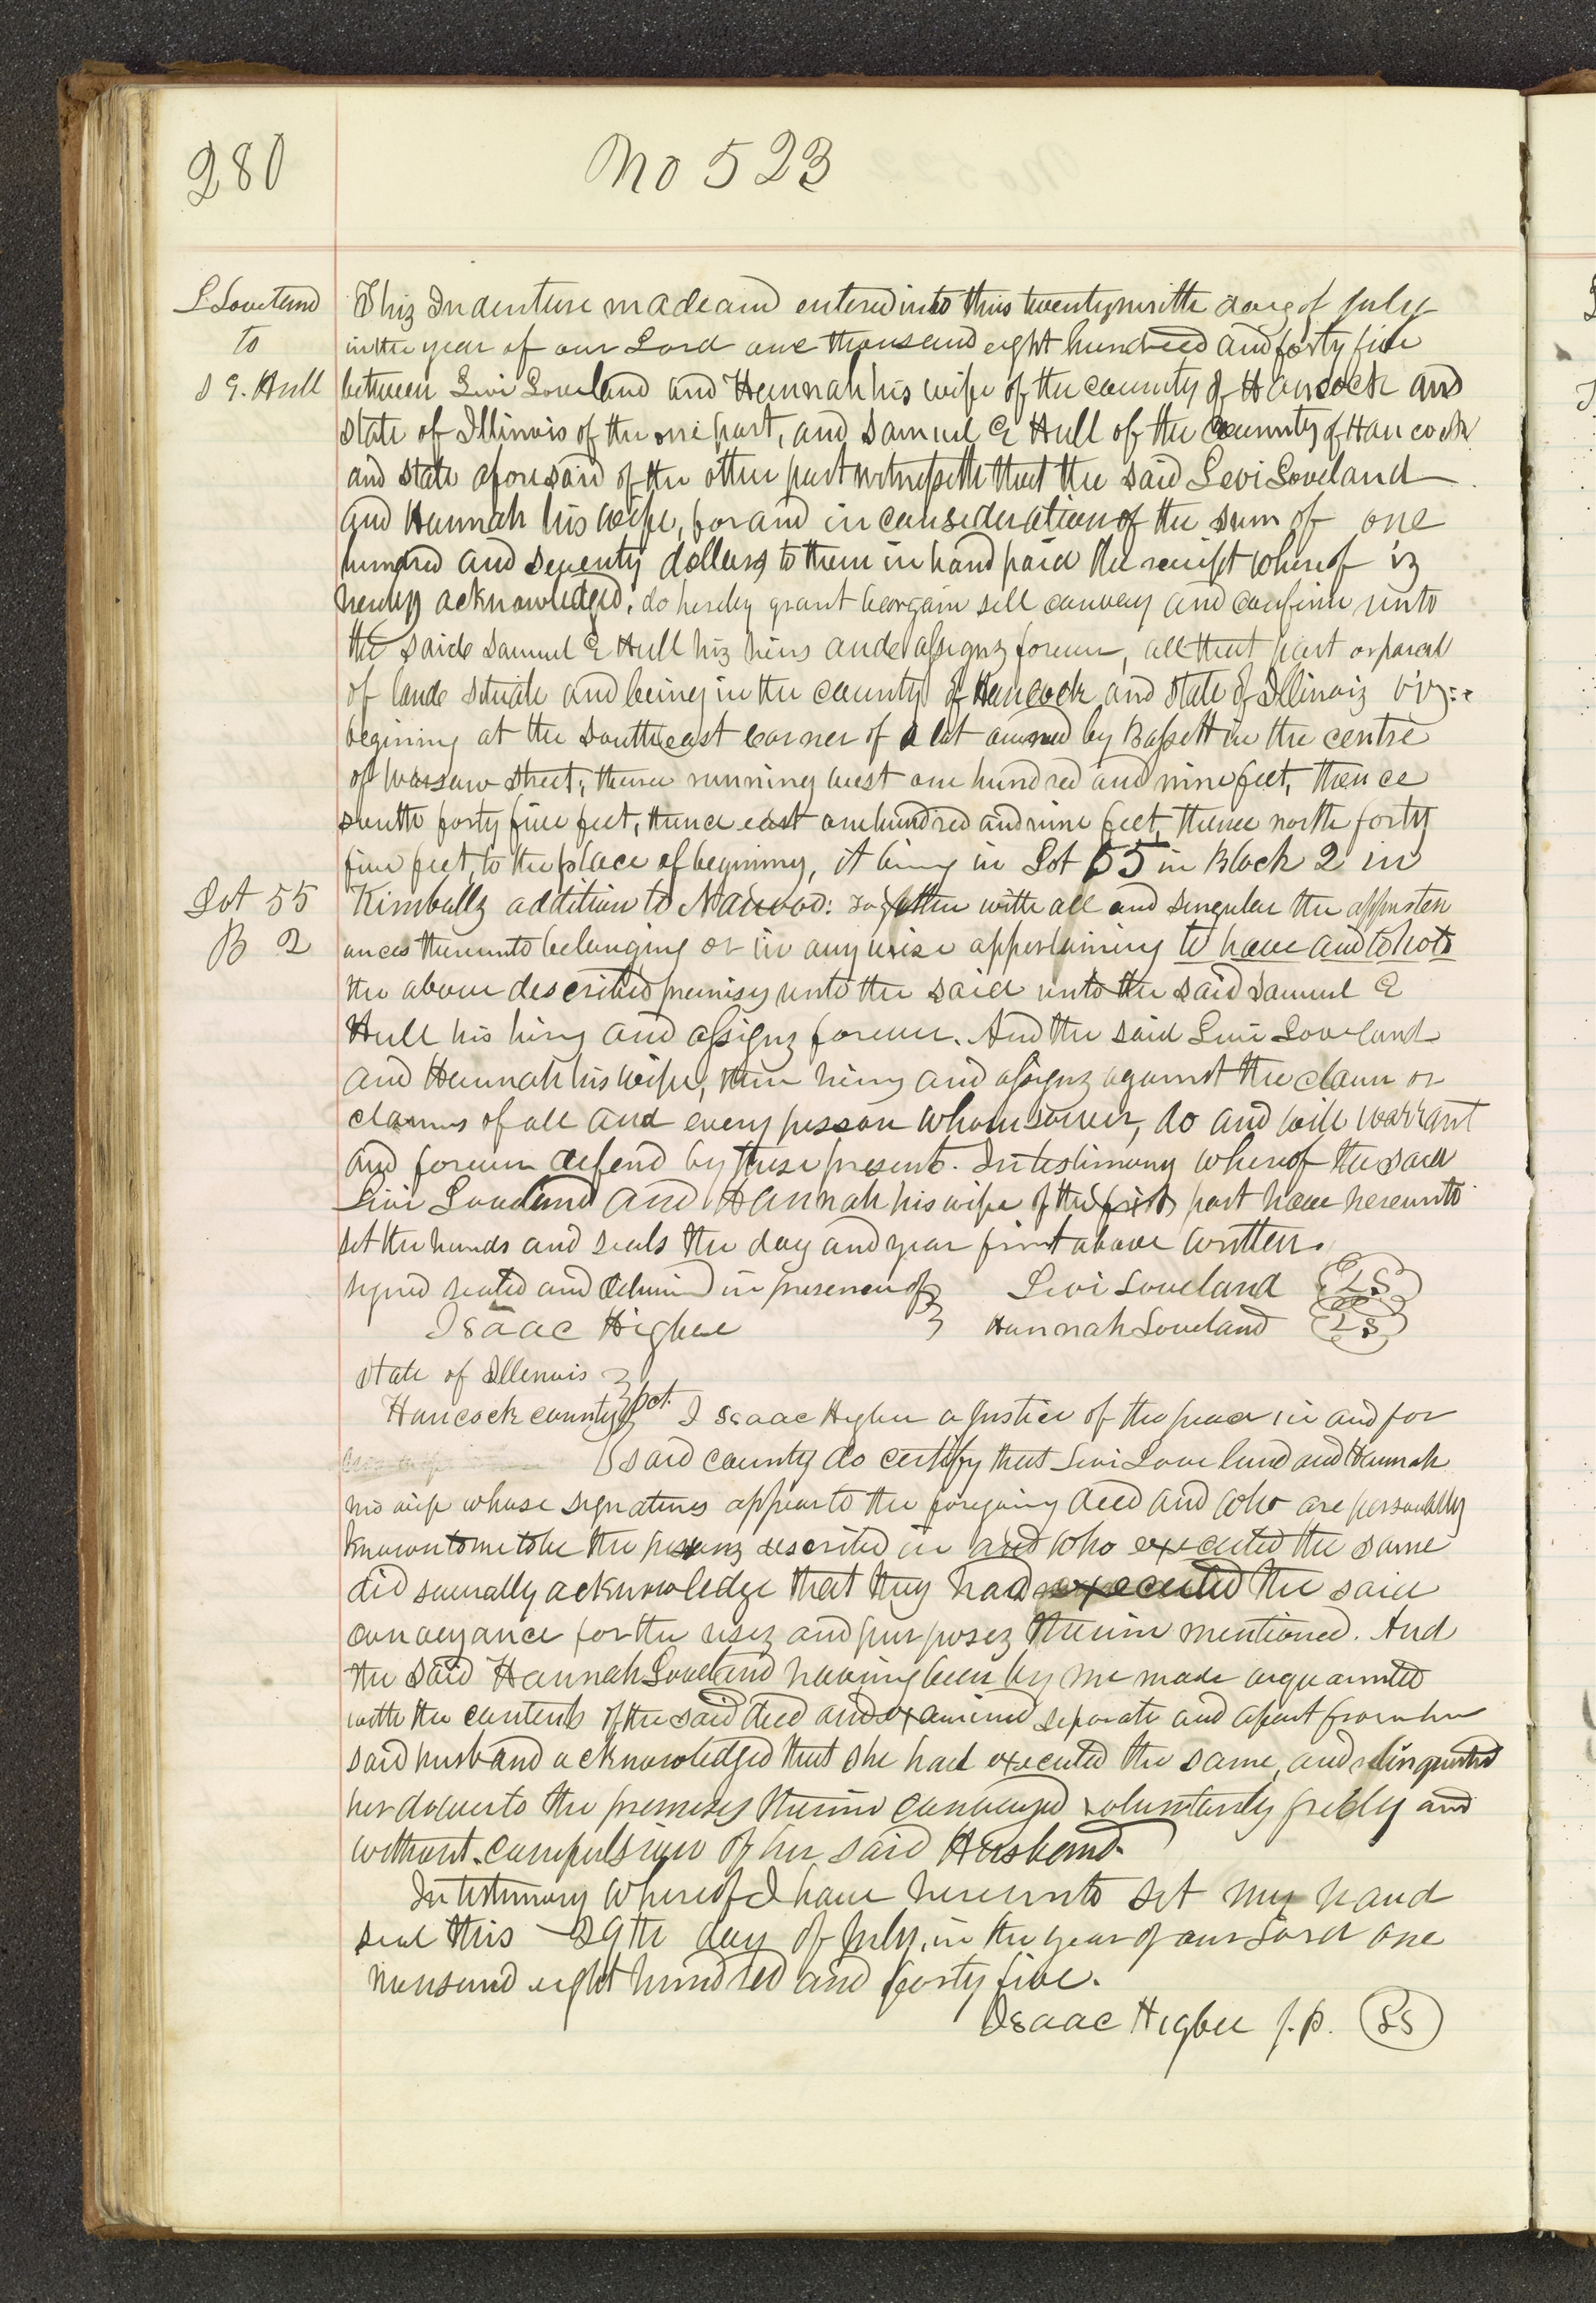 280
No 523
L Loveland
to
S E. Hull
This Indenture made and entered into this twentyninth day of July
in the year of our Lord one thousand eight hundred and forty five
between Levi Loveland and Hannah his wife of the county of Hancock and
state of Illinois of the one part, and Samuel E Hull of the county of Hancock
and state aforesaid of the other part witnesseth that the said Levi Loveland
and Hannah his wife, for and in consideration of the sum of one
hundred and seventy dollars to them in hand paid the receipt whereof is
hereby acknowledged; do hereby grant bargain sell convey and confirm unto
the said Samuel E Hull his heirs and assigns forever, all that part or parcel
of land situate and being in the county of Hancock and state of Illinois viz:
begining at the Southeast corner of a lot owned by Bassett in the centre
of Warsaw street; thence running west one hundred and nine feet, thence
south forty five feet, thence east one hundred and nine feet, thence north forty
five feet, to the place of begining, it being in Lot 55 in Block 2 in
Lot 55
Kimballs addition to Nauvoo: together with all and singular the appurten
B 2
ances thereunto belonging or in any wise appertaining to have and to hold
the above described premises unto the said unto the said Samuel E
Hull his heirs and assigns forever. And the said Levi Loveland
and Hannah his wife, their heirs and assigns against the claim or
claims of all and every person whomsoever, do and will warrant
and forever defend by these presents. In testimony whereof the said
Levi Loveland and Hannah his wife of the first part have hereunto
set the hands and seals the day and year first above written.
signed sealed and delivered in presence of Levi Loveland LS
Isaac Higbee Hannah Loveland LS
State of Illenois
Hancock county sct. I Isaac Higbee a Justice of the peace in and for
said county do certify that Levi Loveland and Hannah
his wife whose signatures appear to the foregoing deed and who are personally
known to me to be the persons described in and who executed the same
did severally acknowledge that they had executed the said
conveyance for the uses and purposes therein mentioned. And
the said Hannah Loveland having been by me made acquainted
with the contents of the said deed and examined separate and apart from her
said husband acknowledged that she had executed the same, and relinquished
her dower to the premises therein conveyed voluntarily freely and
without compulsion of her said Husband.
In testimony whereof I have hereunto set my hand
seal this 29th day of July, in the year of our Lord one
thousand eight hundred and forty five.
Isaac Higbee J.P. LS